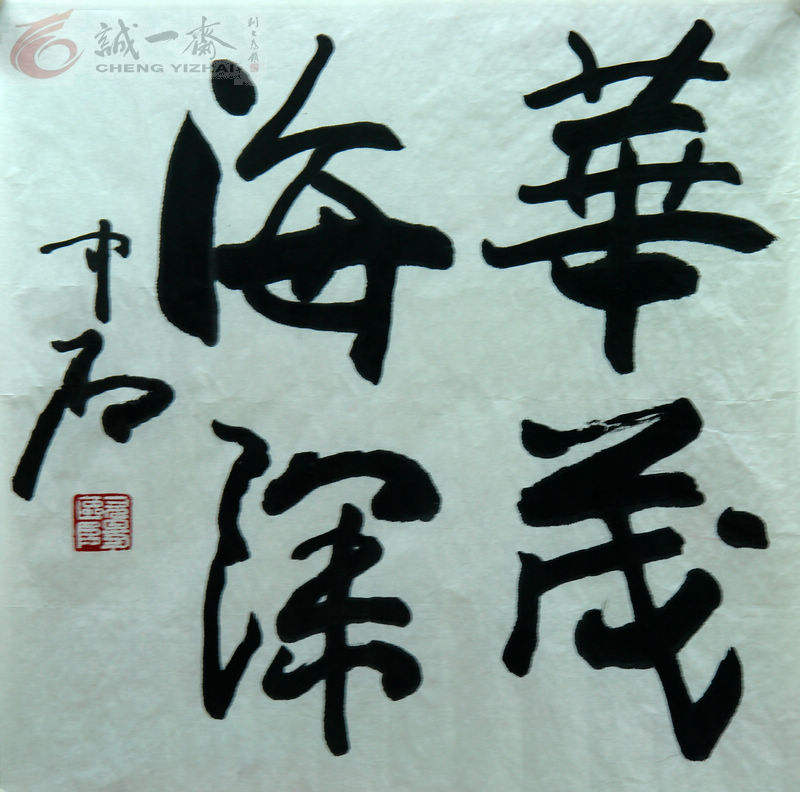 華茂
海深
中石
誠一齋
CHENG YIZHAI